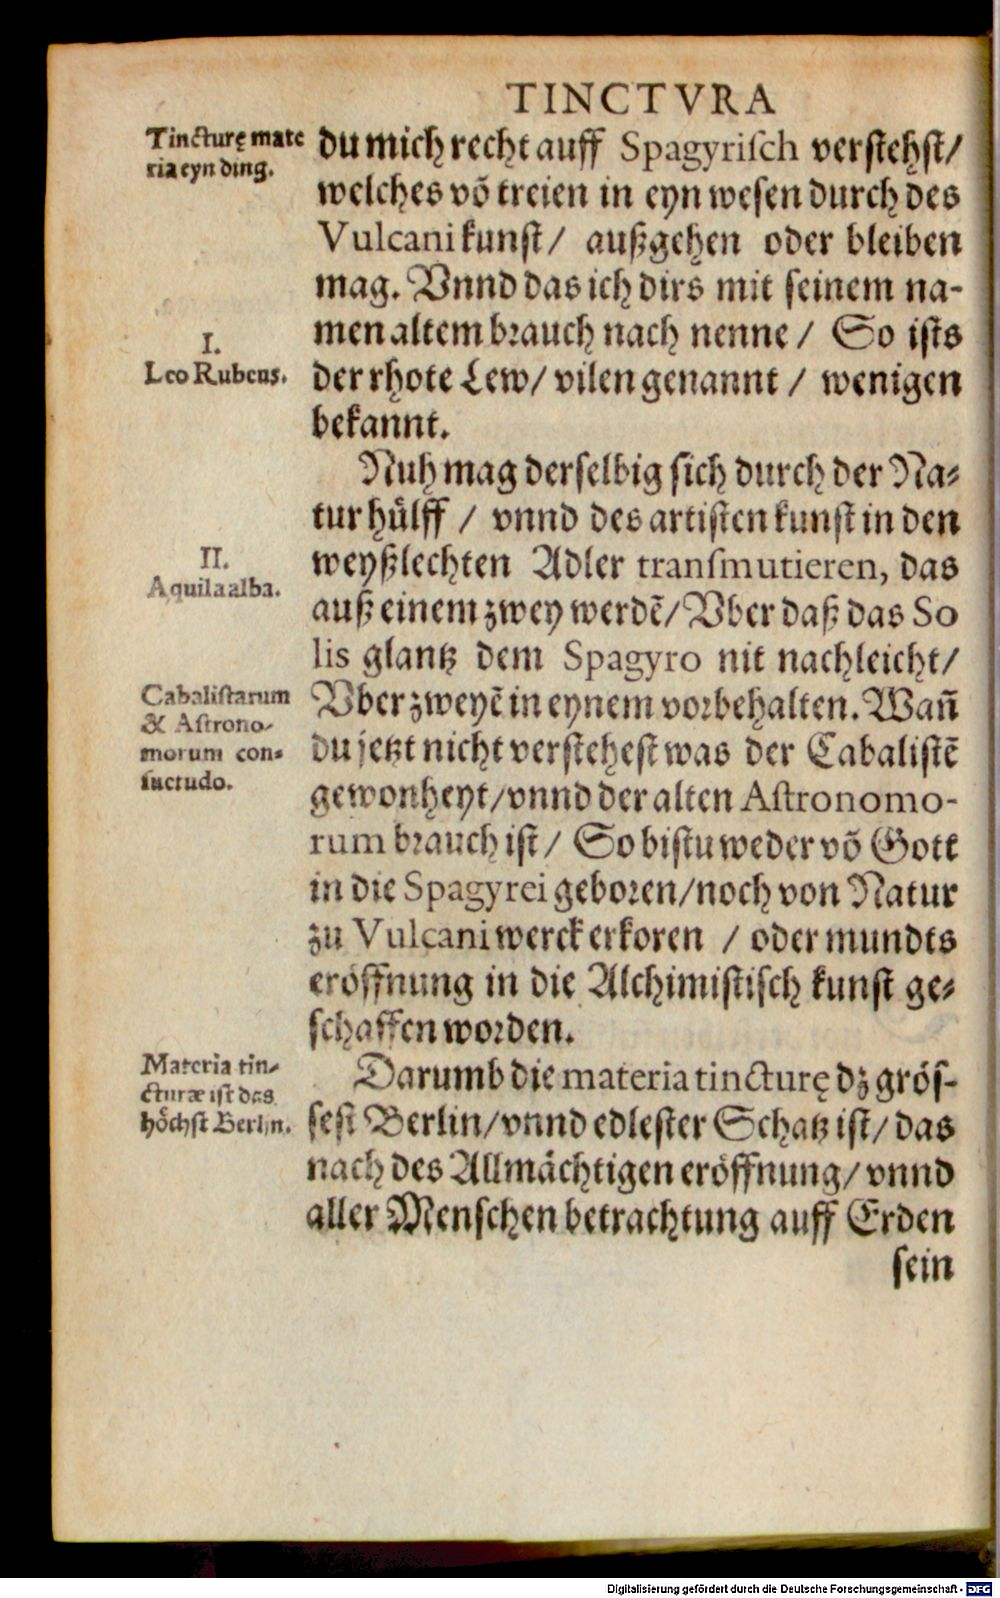 TINCTVRA
Tincturę mate
ria eyn ding.
du mich recht auff Spagyrisch verstehst/
welches võ treien in eyn wesen durch des
Vulcani kunst/ außgehen oder bleiben
mag. Vnnd das ich dirs mit seinem na-
men altem brauch nach nenne / So ists
I.
Leo Rubeus.
der rhote Lew/ vilen genannt / wenigen
bekannt.
Nuh mag derselbig sich durch der Na-
tur hůlff / vnnd des artisten kunst in den
II.
Aquila alba.
weyßlechten Adler transmutieren, das
auß einem zwey werdẽ/ Vber daß das So
lis glantz dem Spagyro nit nachleicht/
Cabalistarum
& Astrono-
morum con-
suetudo.
Vber zweyẽ in eynem vorbehalten. Wañ
du jetzt nicht verstehest was der Cabalistẽ
gewonheyt/ vnnd der alten Astronomo-
rum brauch ist/ So bistu weder võ Gott
in die Spagyrei geboren/ noch von Natur
zu Vulcani werck erkoren / oder mundts
eröffnung in die Alchimistisch kunst ge-
schaffen worden.
Materia tin-
cturæ ist das
höchst Berlin.
Darumb die materia tincturę dz grös-
sest Berlin/ vnnd edlester Schatz ist/ das
nach des Allmächtigen eröffnung/ vnnd
aller Menschen betrachtung auff Erden
sein
Digitalisierung gefördert durch die Deutsche Forschungsgemeinschaft - DFG